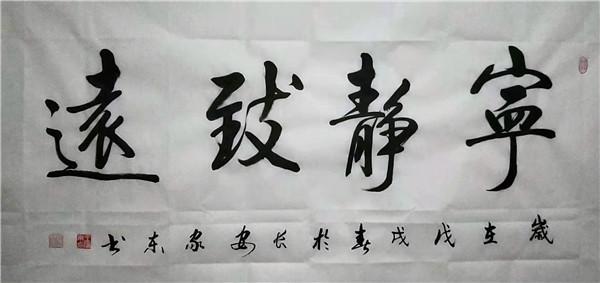 寧靜致遠
歲在戊戌春於长安家东书